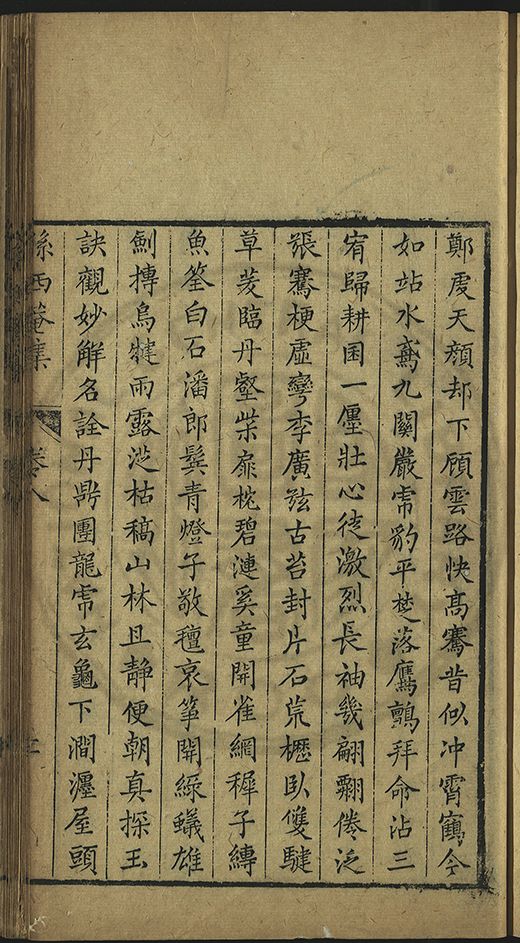 鄭虔天顏却下顧雲路快髙騫昔似冲霄鶴今
如站水鳶九關嚴虎豹平楚落鷹鸇拜命沾三
宥歸耕困一廛壯心徒激烈長袖幾翩翾倦泛
張騫梗虛彎李廣弦古苔封片石荒櫪臥雙
草茇臨丹壑柴扉枕碧漣奚童開雀網穉子縛
魚筌白石潘郎鬂青燈子敬氊哀箏開綠蟻雄
劍摶烏犍雨露枯稿山林且靜便朝真探玉
訣觀妙解名詮丹鼎團龍虎玄龜下澗瀍屋頭
孫西菴集 卷八